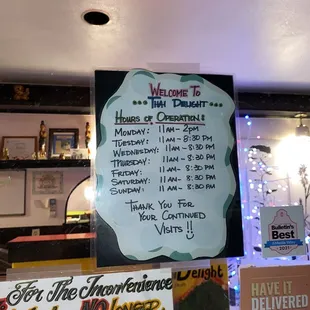 WELCOME TO
THAI DELIGHT
HOURS OF OPERATION!!
MONDAY: 11AM - 2PM
TUESDAY: 11AM - 8:30 PM
WEDNESDAY: 11AM - 8:30 PM
THURSDAY: 11AM - 8:30 PM
FRIDAY: 11AM - 8:30 PM
SATURDAY: 11AM - 8:30 PM
SUNDAY: 11AM - 8:30 PM
THANK YOU FOR
YOUR CONTINUED
VISITS!!
Bulletin's
Best
For The Inconvenience
NO Longer
Delight
HAVE IT
DELIVERED